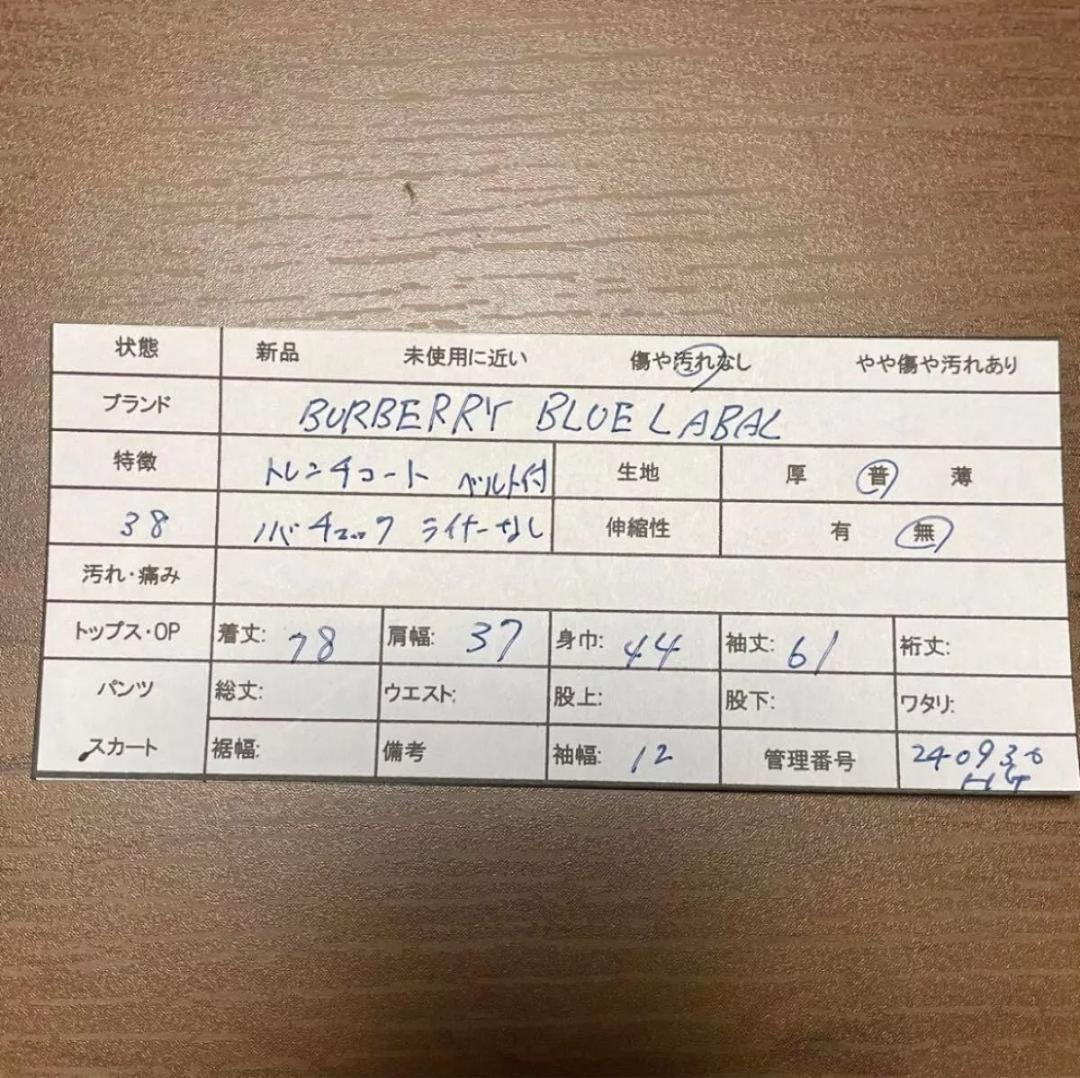 状態 新品 未使用に近い 傷や汚れなし やや傷や汚れあり
ブランド BURBERRY BLUE LABAL
特徴 トレンチコート ベルト付 生地 厚 普 薄
38 ノバチェック ライナーなし 伸縮性 有 無
汚れ・痛み
トップス・OP 着丈: 78 肩幅: 37 身巾: 44 袖丈: 61 裄丈:
パンツ 総丈: ウエスト: 股上: 股下: ワタリ:
スカート 裾幅: 備考 袖幅: 12 管理番号 240930